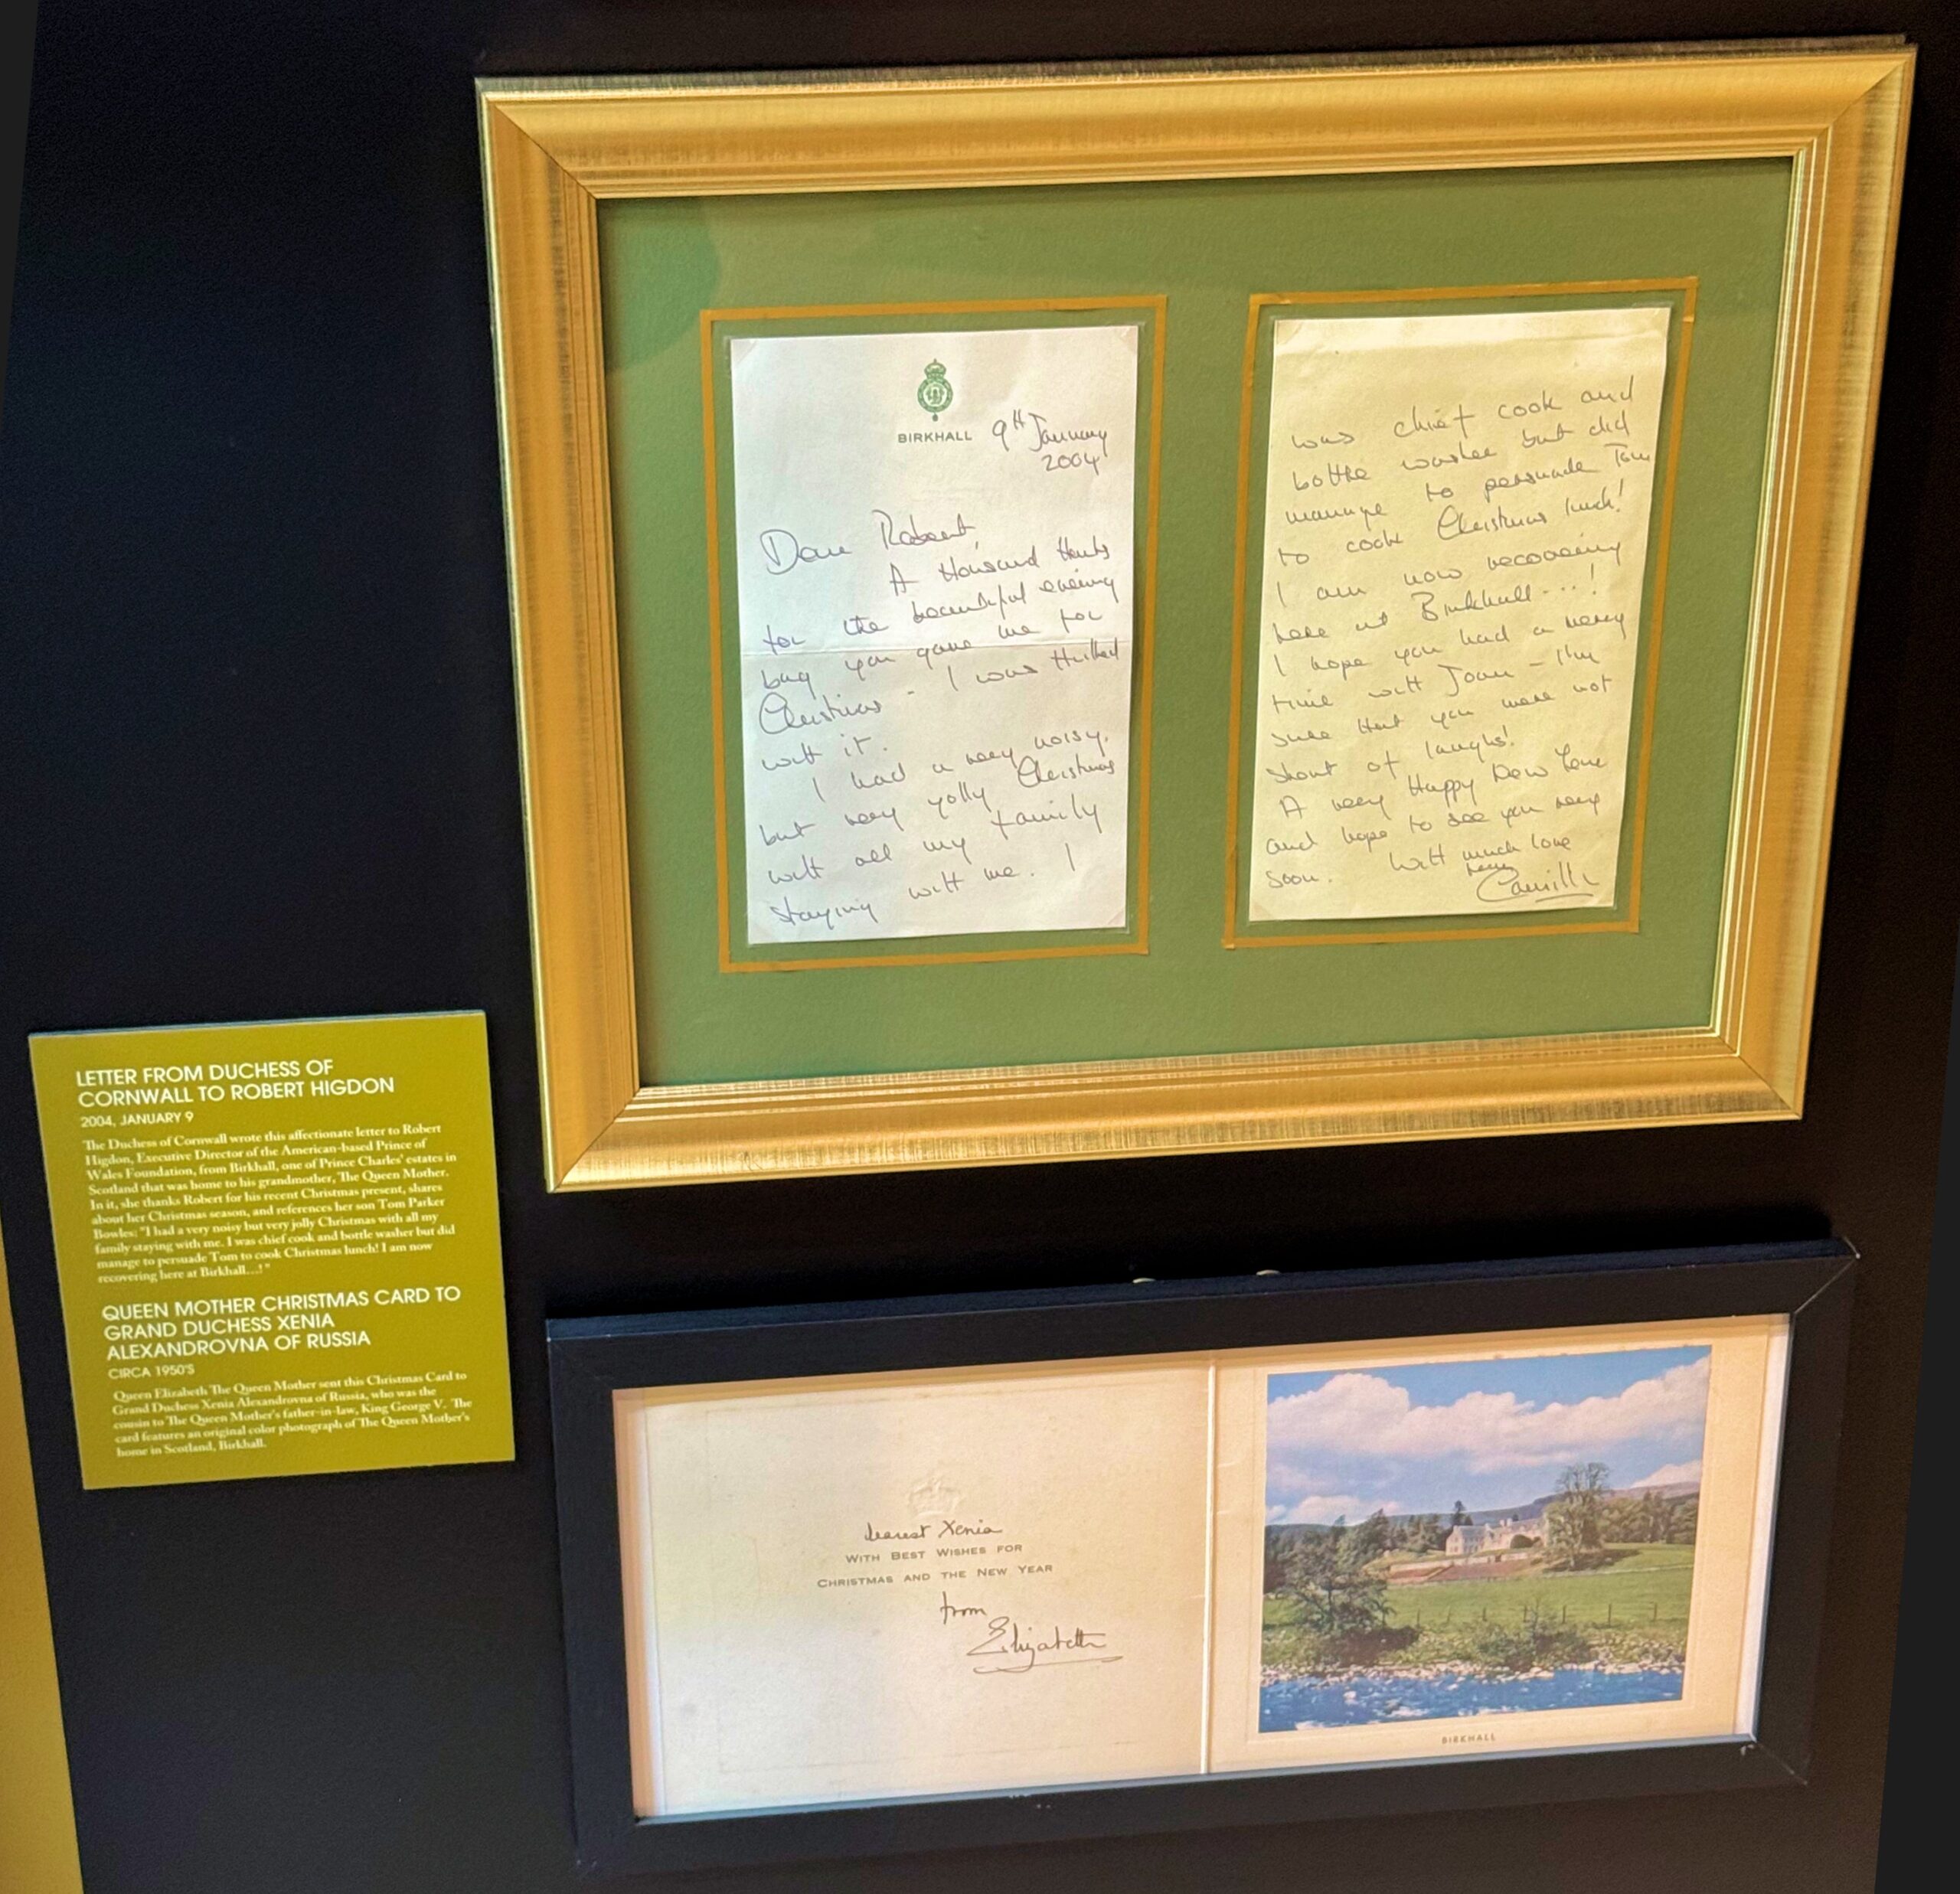 BIRKHALL
9th January
2004
Dear Robert,
A thousand thanks
for the beautiful evening
bag you gave me for
Christmas - I was thrilled
with it.
I had a very noisy,
but very jolly Christmas
with all my family
staying with me. I
was chief cook and
bottle washer but did
manage to persuade Tom
to cook Christmas lunch!
I am now recovering
here at Birkhall...!
I hope you had a merry
time with Joan - I'm
sure that you were not
short of laughs!
A very Happy New Year
and hope to see you very
soon. With much love
from
Camilla
LETTER FROM DUCHESS OF
CORNWALL TO ROBERT HIGDON
2004, JANUARY 9
The Duchess of Cornwall wrote this affectionate letter to Robert
Higdon, Executive Director of the American-based Prince of
Wales Foundation, from Birkhall, one of Prince Charles' estates in
Scotland that was home to his grandmother, The Queen Mother.
In it, she thanks Robert for his recent Christmas present, shares
about her Christmas season, and references her son Tom Parker
Bowles: "I had a very noisy but very jolly Christmas with all my
family staying with me. I was chief cook and bottle washer but did
manage to persuade Tom to cook Christmas lunch! I am now
recovering here at Birkhall...!"
QUEEN MOTHER CHRISTMAS CARD TO
GRAND DUCHESS XENIA
ALEXANDROVNA OF RUSSIA
CIRCA 1950'S
Queen Elizabeth The Queen Mother sent this Christmas Card to
Grand Duchess Xenia Alexandrovna of Russia, who was the
cousin to The Queen Mother's father-in-law, King George V. The
card features an original color photograph of The Queen Mother's
home in Scotland, Birkhall.
dearest Xenia
WITH BEST WISHES FOR
CHRISTMAS AND THE NEW YEAR
from
Elizabeth
BIRKHALL